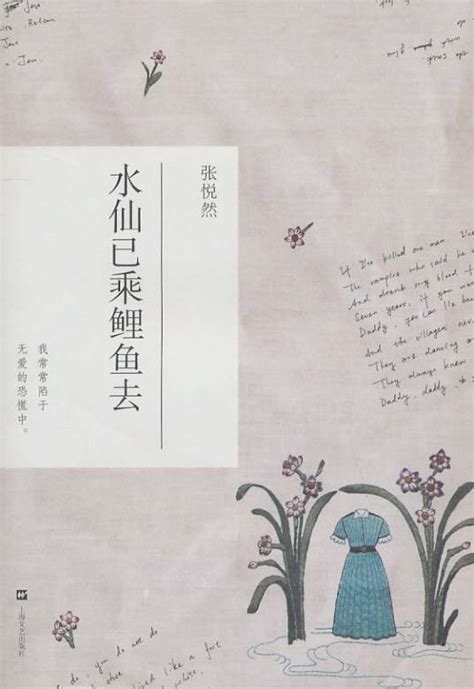 张悦然
水仙已乘鲤鱼去
我常常陷于
无爱的恐慌中。
If I've killed one man, I've
The vampire who said he w
And drank my blood f
Seven years, if you wan
Daddy, you can lie b
And the villagers never
They are dancing
They always knew
Daddy, daddy
do, you do not do
lived like a foot
where,
上海文艺出版社